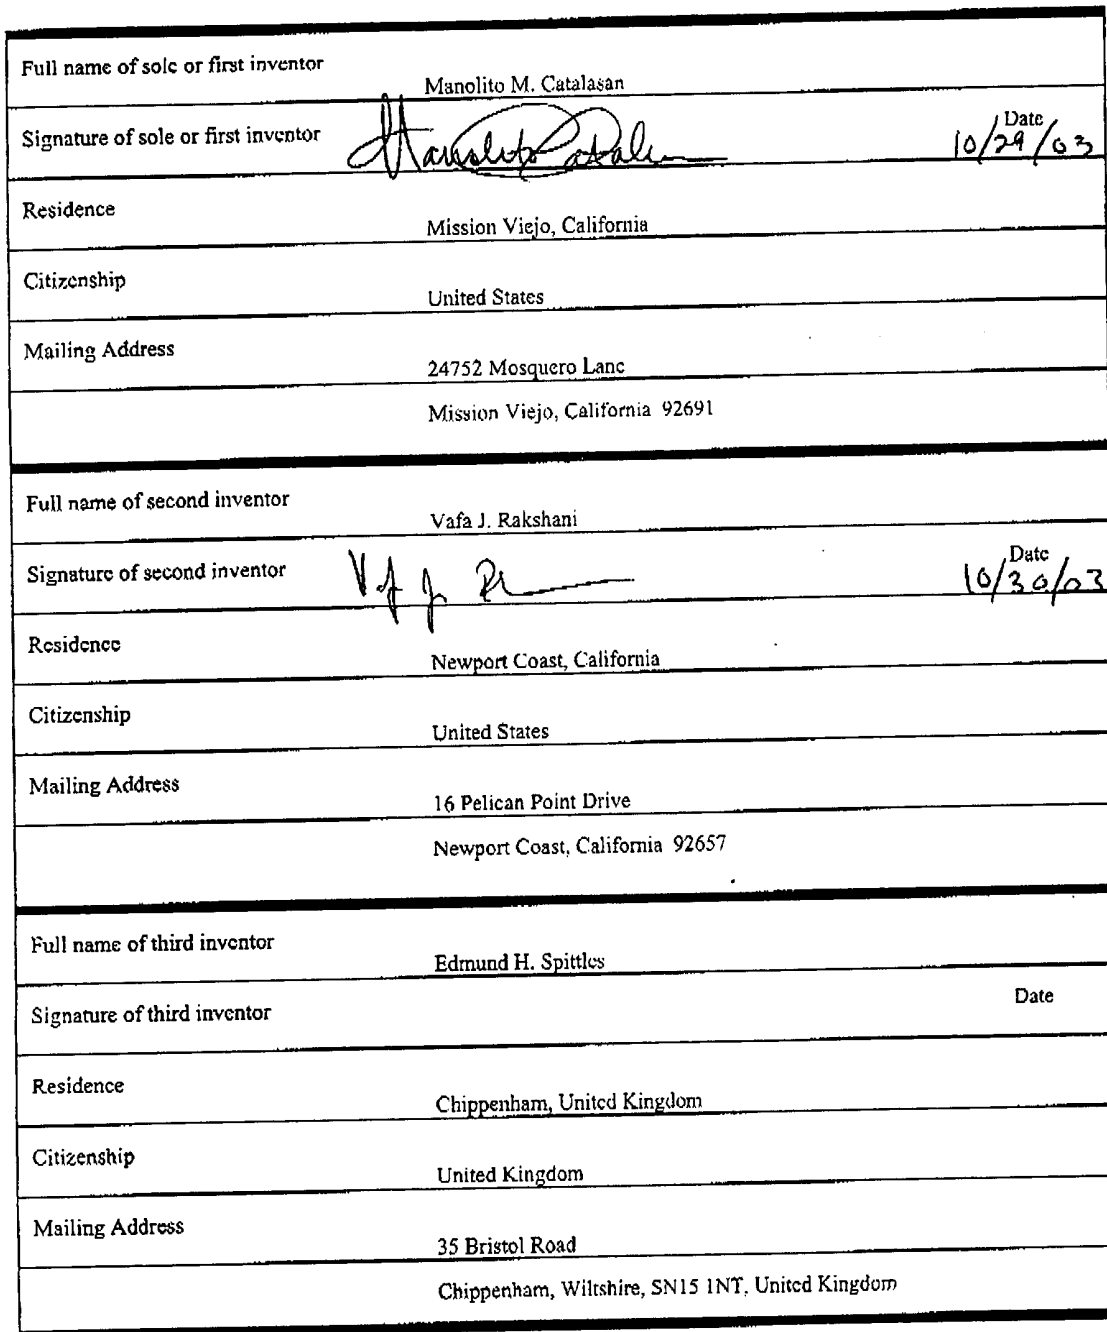 Full name of sole or first inventor
Manolito M. Catalasan
Signature of sole or first inventor Manolito Catalan Date
10/29/03
Residence
Mission Viejo, California
Citizenship
United States
Mailing Address
24752 Mosquero Lane
Mission Viejo, California 92691
Full name of second inventor
Vafa J. Rakshani
Signature of second inventor Date
10/30/03
Residence
Newport Coast, California
Citizenship
United States
Mailing Address
16 Pelican Point Drive
Newport Coast, California 92657
Full name of third inventor
Edmund H. Spittles
Signature of third inventor Date
Residence
Chippenham, United Kingdom
Citizenship
United Kingdom
Mailing Address
35 Bristol Road
Chippenham, Wiltshire, SN15 1NT, United Kingdom